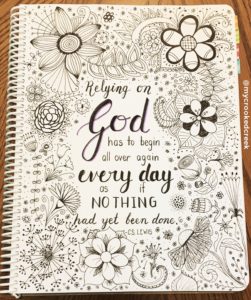 Relying on
God
has to begin
all over again
every day
as if
NOTHING
had yet been done.
-CS LEWIS
@mycrookedcreek